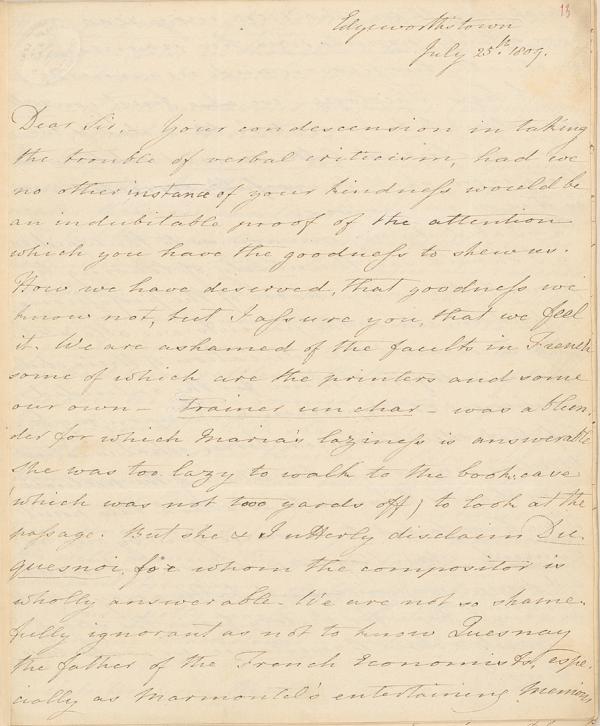 13
Edgeworthstown
July 25th. 1809.
Dear Sir. Your condescension in taking
the trouble of verbal criticism, had we
no other instance of your kindness would be
an indubitable proof of the attention
which you have the goodness to shew us.
How we have deserved, that goodness we
know not, but I assure you, that we feel
it. We are ashamed of the faults in French
some of which are the printers and some
our own - trainer un char - was a blun-
der for which Maria's laziness is answerable
she was too lazy to walk to the book-case
(which was not two yards off) to look at the
passage. But she & I utterly disclaim Du-
quesnoi, for whom the compositor is
wholly answerable. We are not so shame-
fully ignorant as not to know Quesnay
the father of the French Economists, espe-
cially as Marmontel's entertaining Memoirs,